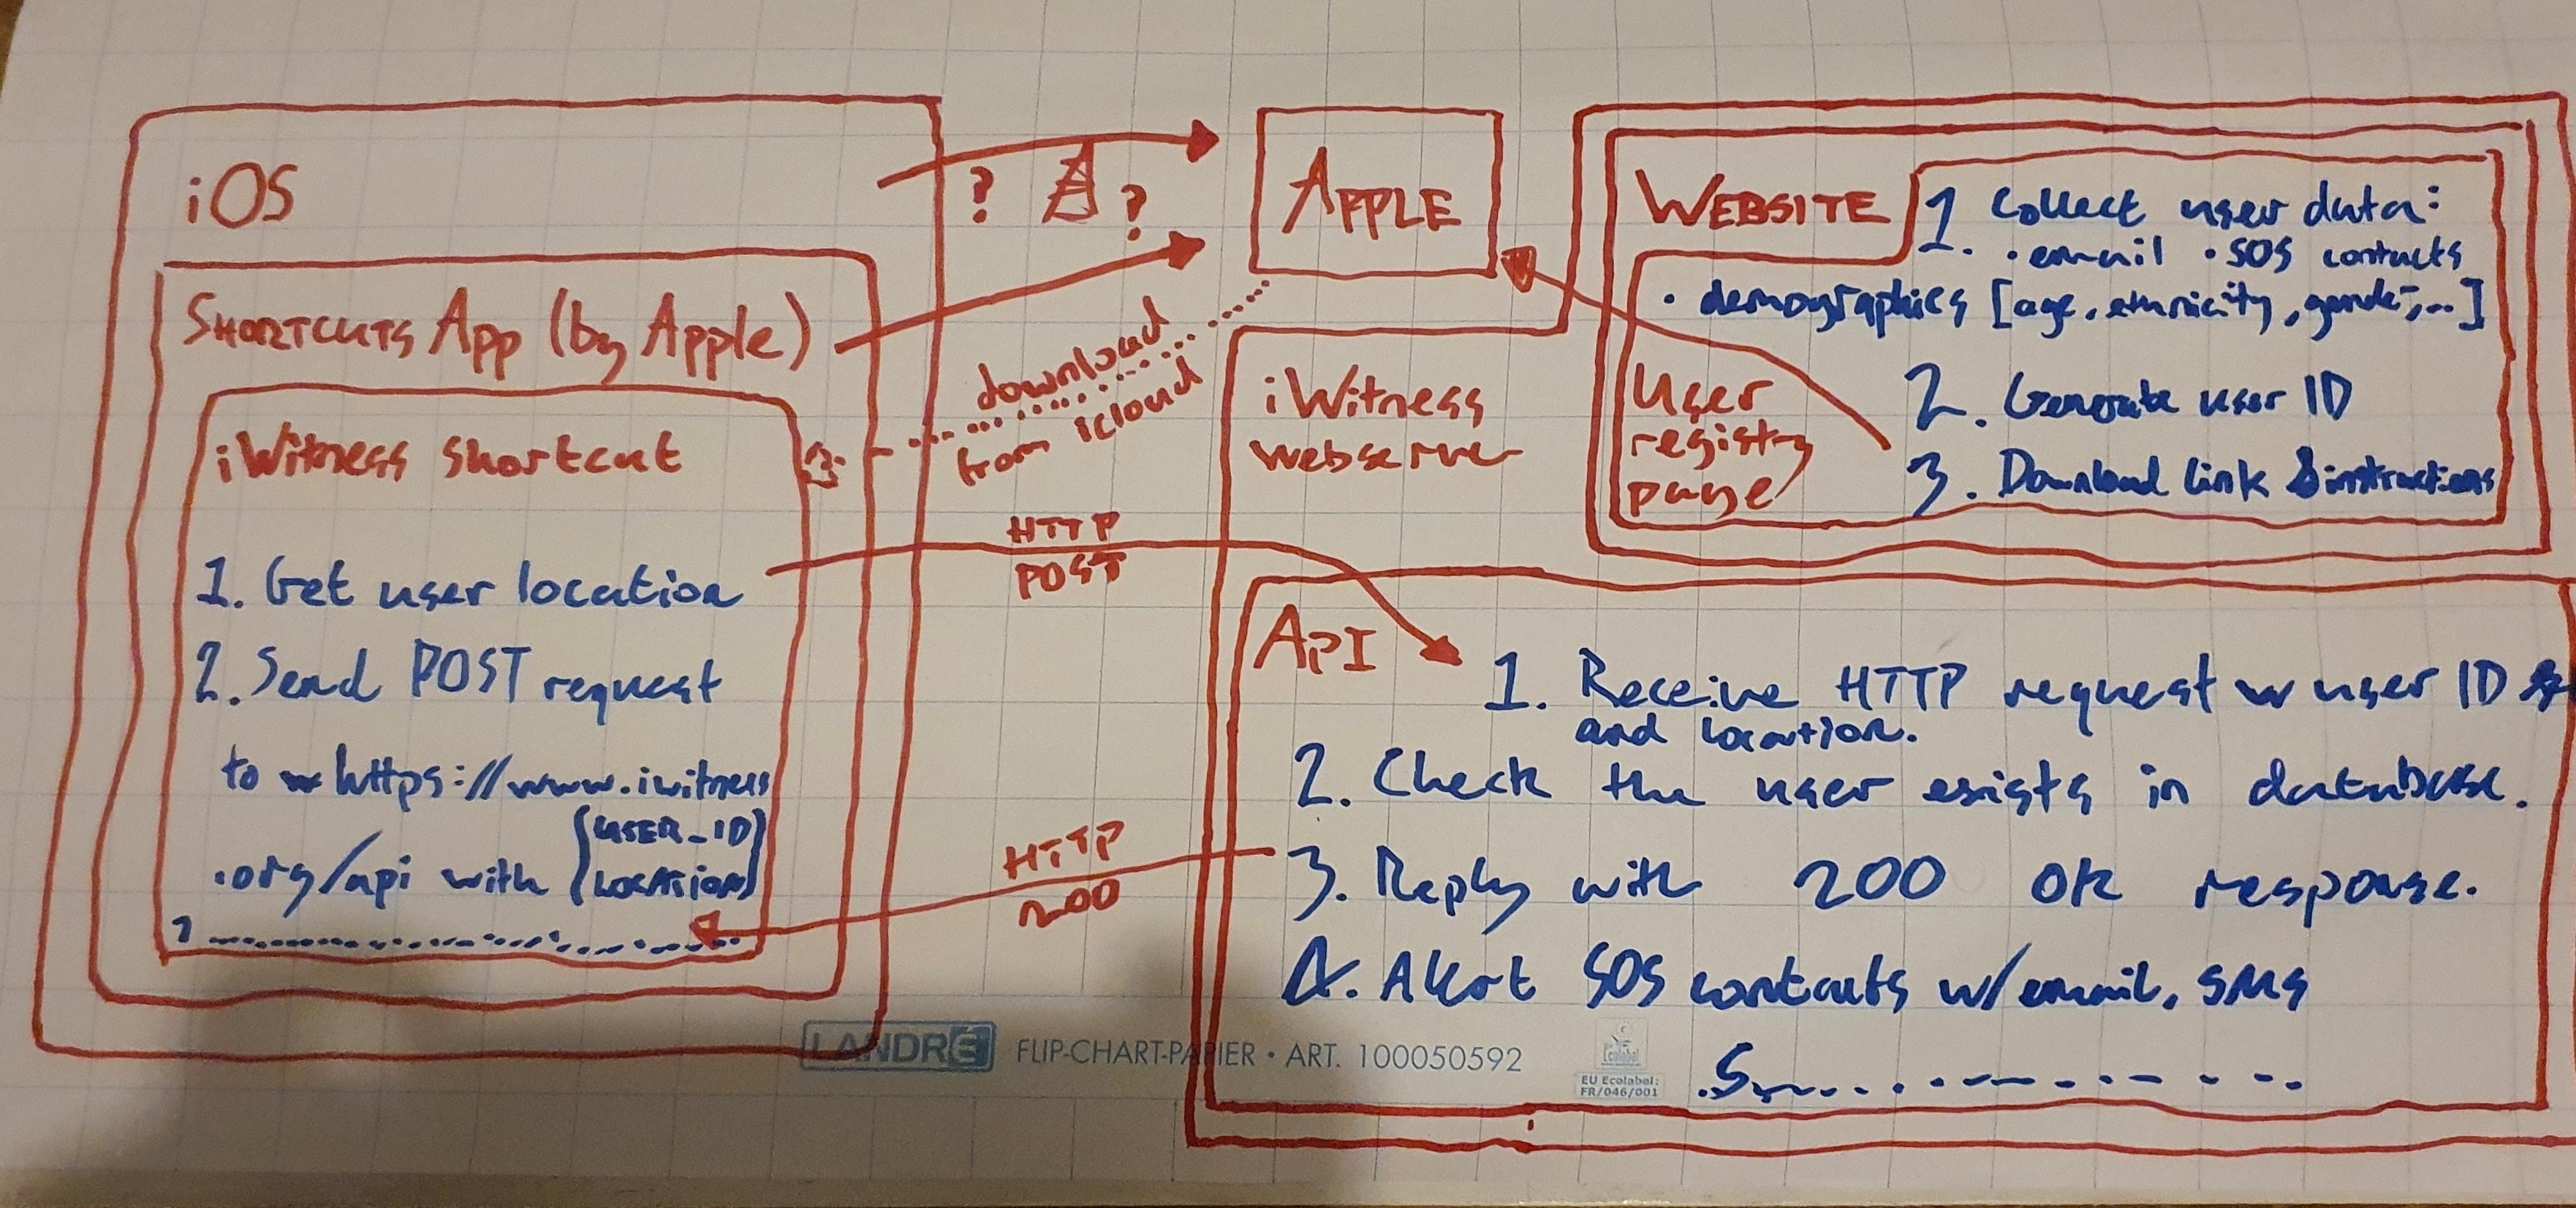 iOS
SHORTCUTS App (by Apple)
iWitness shortcut
1. Get user location
2. Send POST request
to https://www.iwitness
.org/api with {USER_ID
LOCATION}
? ?
download
from icloud
HTTP
POST
HTTP
200
APPLE
iWitness
webserver
WEBSITE
User
registry
page
1. Collect user data:
· email · SOS contacts
· demographics [age, ethnicity, gender, ...]
2. Generate user ID
3. Download link & instructions
API
1. Receive HTTP request w user ID
and location.
2. Check the user exists in database.
3. Reply with 200 OK response.
4. Alert SOS contacts w/email, SMS
5
LANDRÉ FLIP-CHART-PAPIER • ART. 100050592
Ecolabel
EU Ecolabel:
FR/046/001